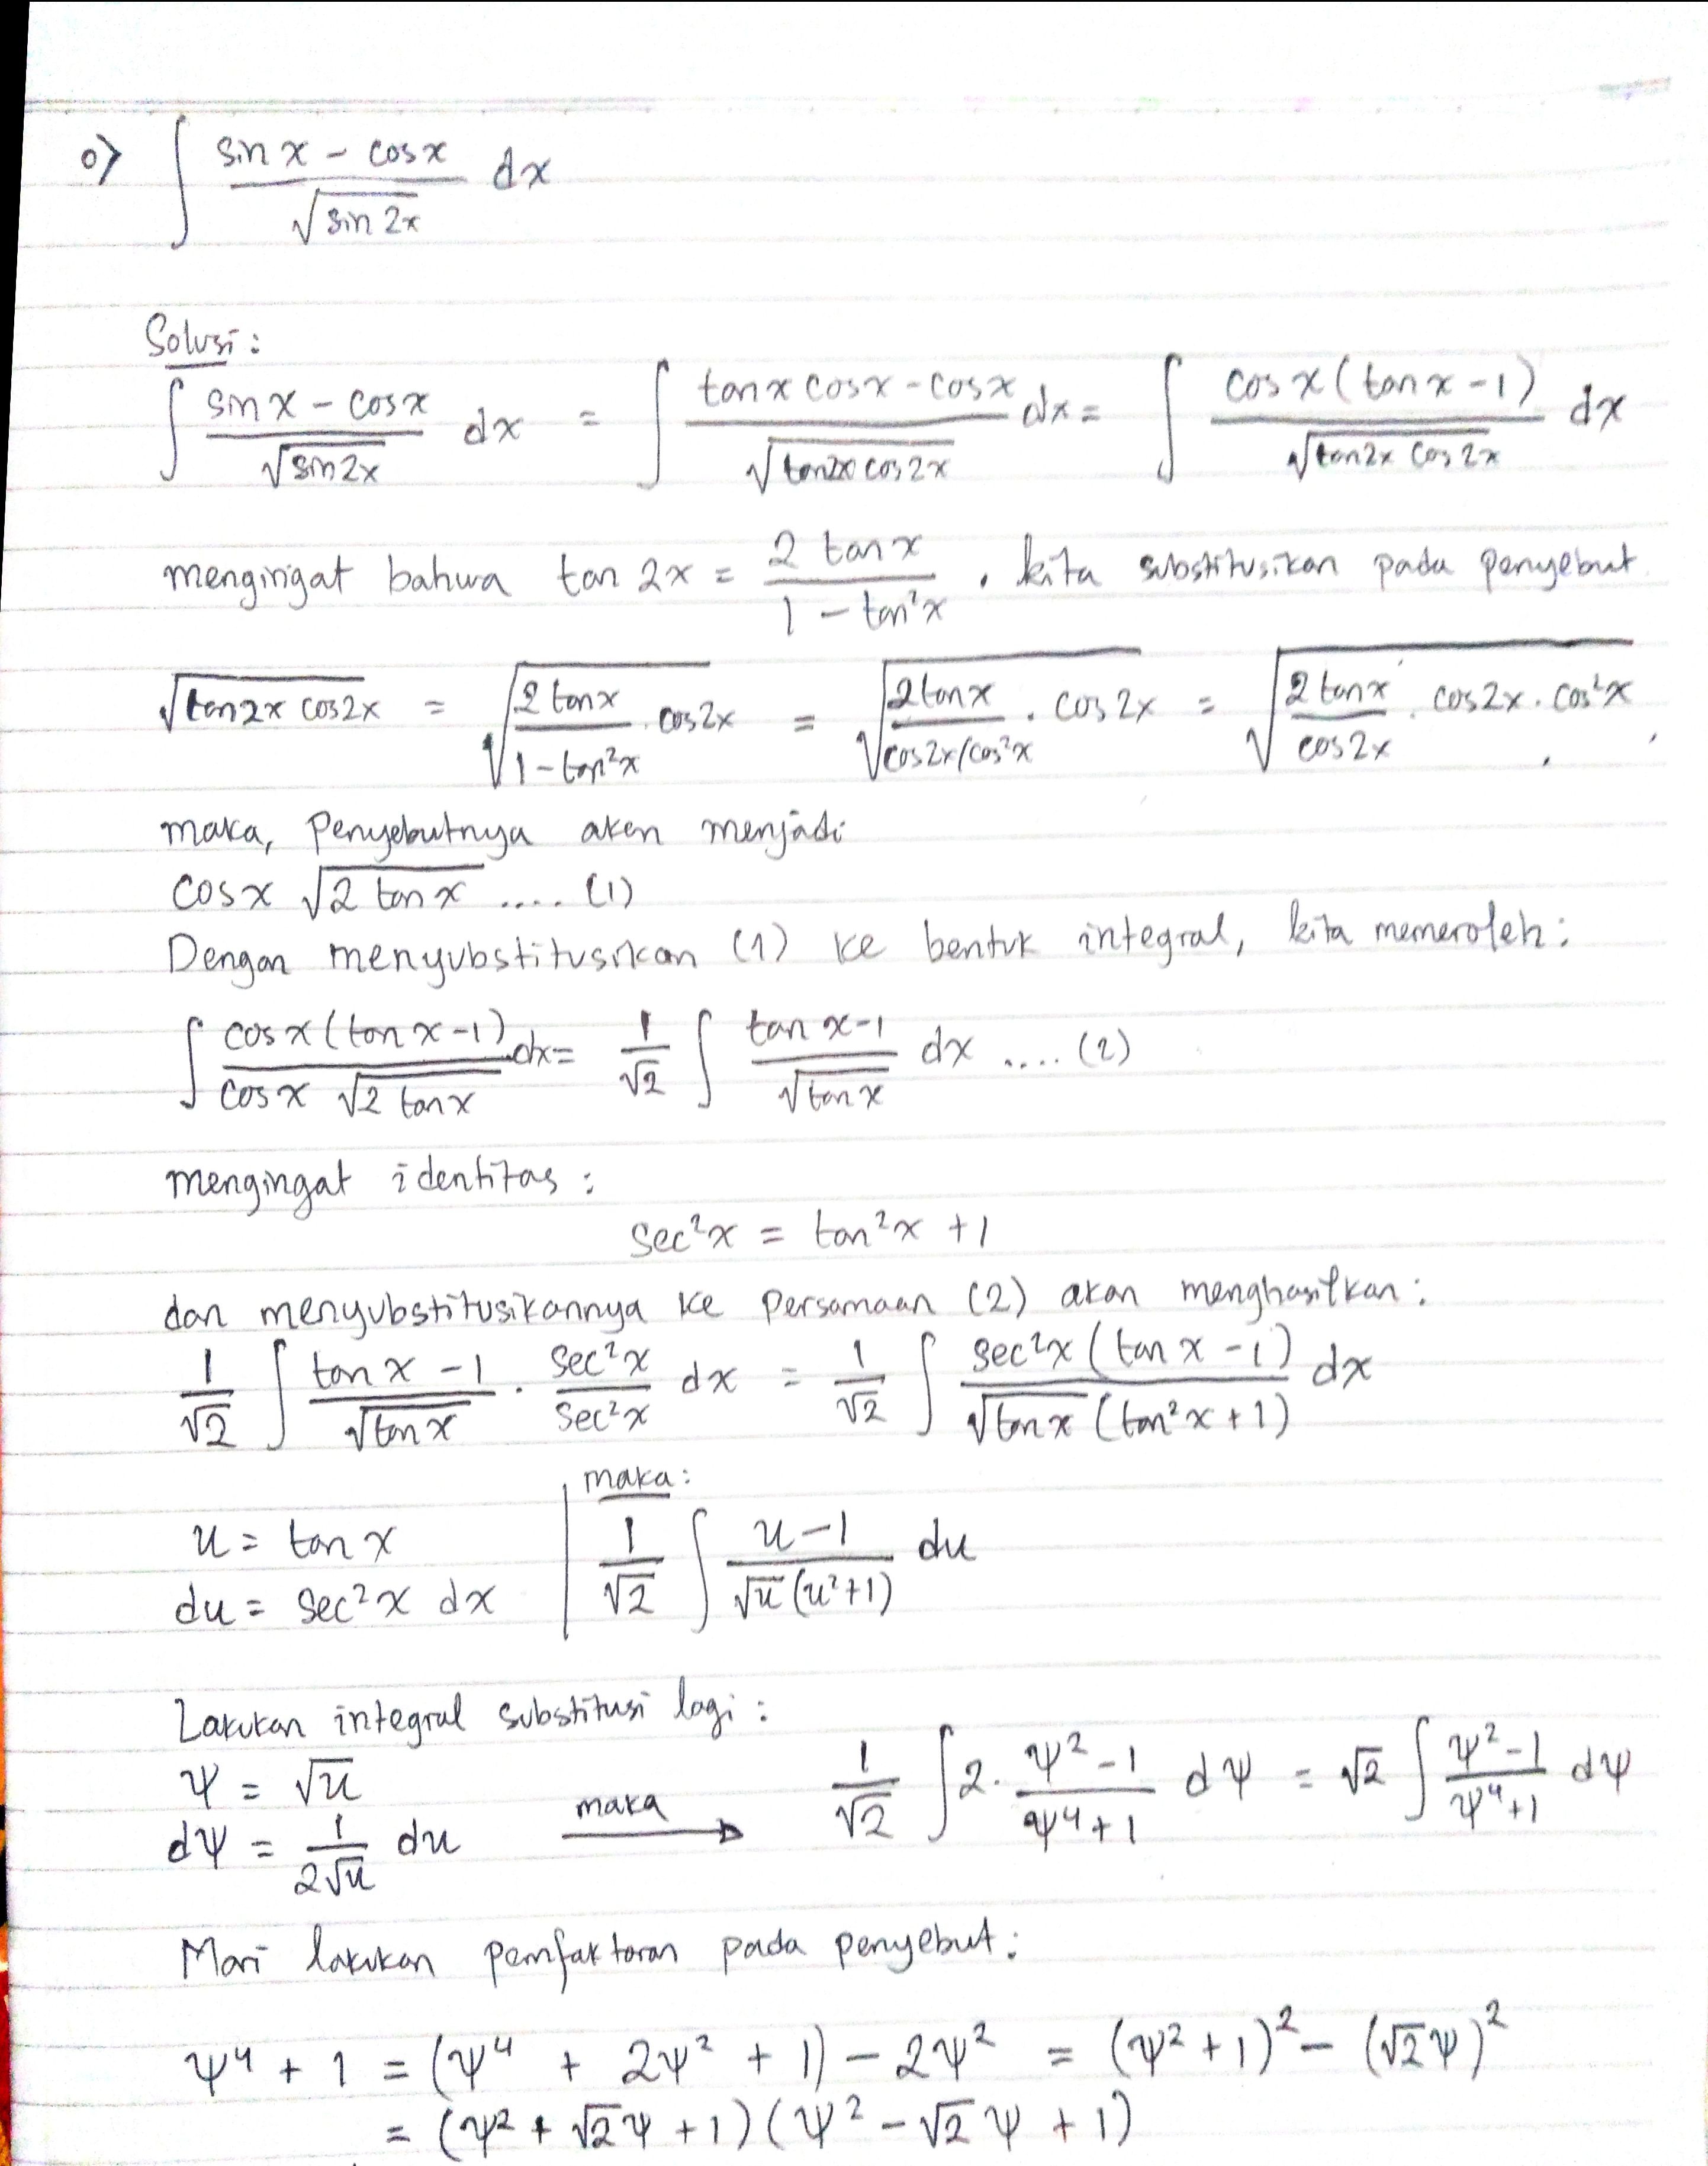 0> ∫ (sin x - cos x)/√(sin 2x) dx
Solusi :
∫ (sin x - cos x)/√(sin 2x) dx = ∫ (tan x cos x - cos x)/√(tan 2x cos 2x) dx = ∫ cos x (tan x - 1)/√(tan 2x cos 2x) dx
mengingat bahwa tan 2x = 2 tan x/(1 - tan²x) , kita substitusikan pada penyebut
√(tan 2x cos 2x) = √(2 tan x/(1 - tan²x) . cos 2x) = √(2 tan x/(cos 2x/cos²x) . cos 2x) = √(2 tan x/cos 2x . cos 2x . cos²x) ,
maka, Penyebutnya akan menjadi
cos x √(2 tan x) .... (1)
Dengan menyubstitusikan (1) ke bentuk integral, kita memeroleh :
∫ cos x (tan x - 1)/(cos x √(2 tan x)) dx = 1/√2 ∫ (tan x - 1)/√(tan x) dx .... (2)
mengingat identitas :
sec²x = tan²x + 1
dan menyubstitusikannya ke persamaan (2) akan menghasilkan :
1/√2 ∫ (tan x - 1)/√(tan x) . sec²x/sec²x dx = 1/√2 ∫ sec²x (tan x - 1)/(√(tan x) (tan²x + 1)) dx
maka :
u = tan x
du = sec²x dx
1/√2 ∫ (u - 1)/(√u (u² + 1)) du
Lakukan integral substitusi lagi :
ψ = √u
dψ = 1/(2√u) du
maka
1/√2 ∫ 2 . (ψ² - 1)/(ψ⁴ + 1) dψ = √2 ∫ (ψ² - 1)/(ψ⁴ + 1) dψ
Mari lakukan pemfaktoran pada penyebut :
ψ⁴ + 1 = (ψ⁴ + 2ψ² + 1) - 2ψ² = (ψ² + 1)² - (√2 ψ)²
= (ψ² + √2 ψ + 1) (ψ² - √2 ψ + 1)